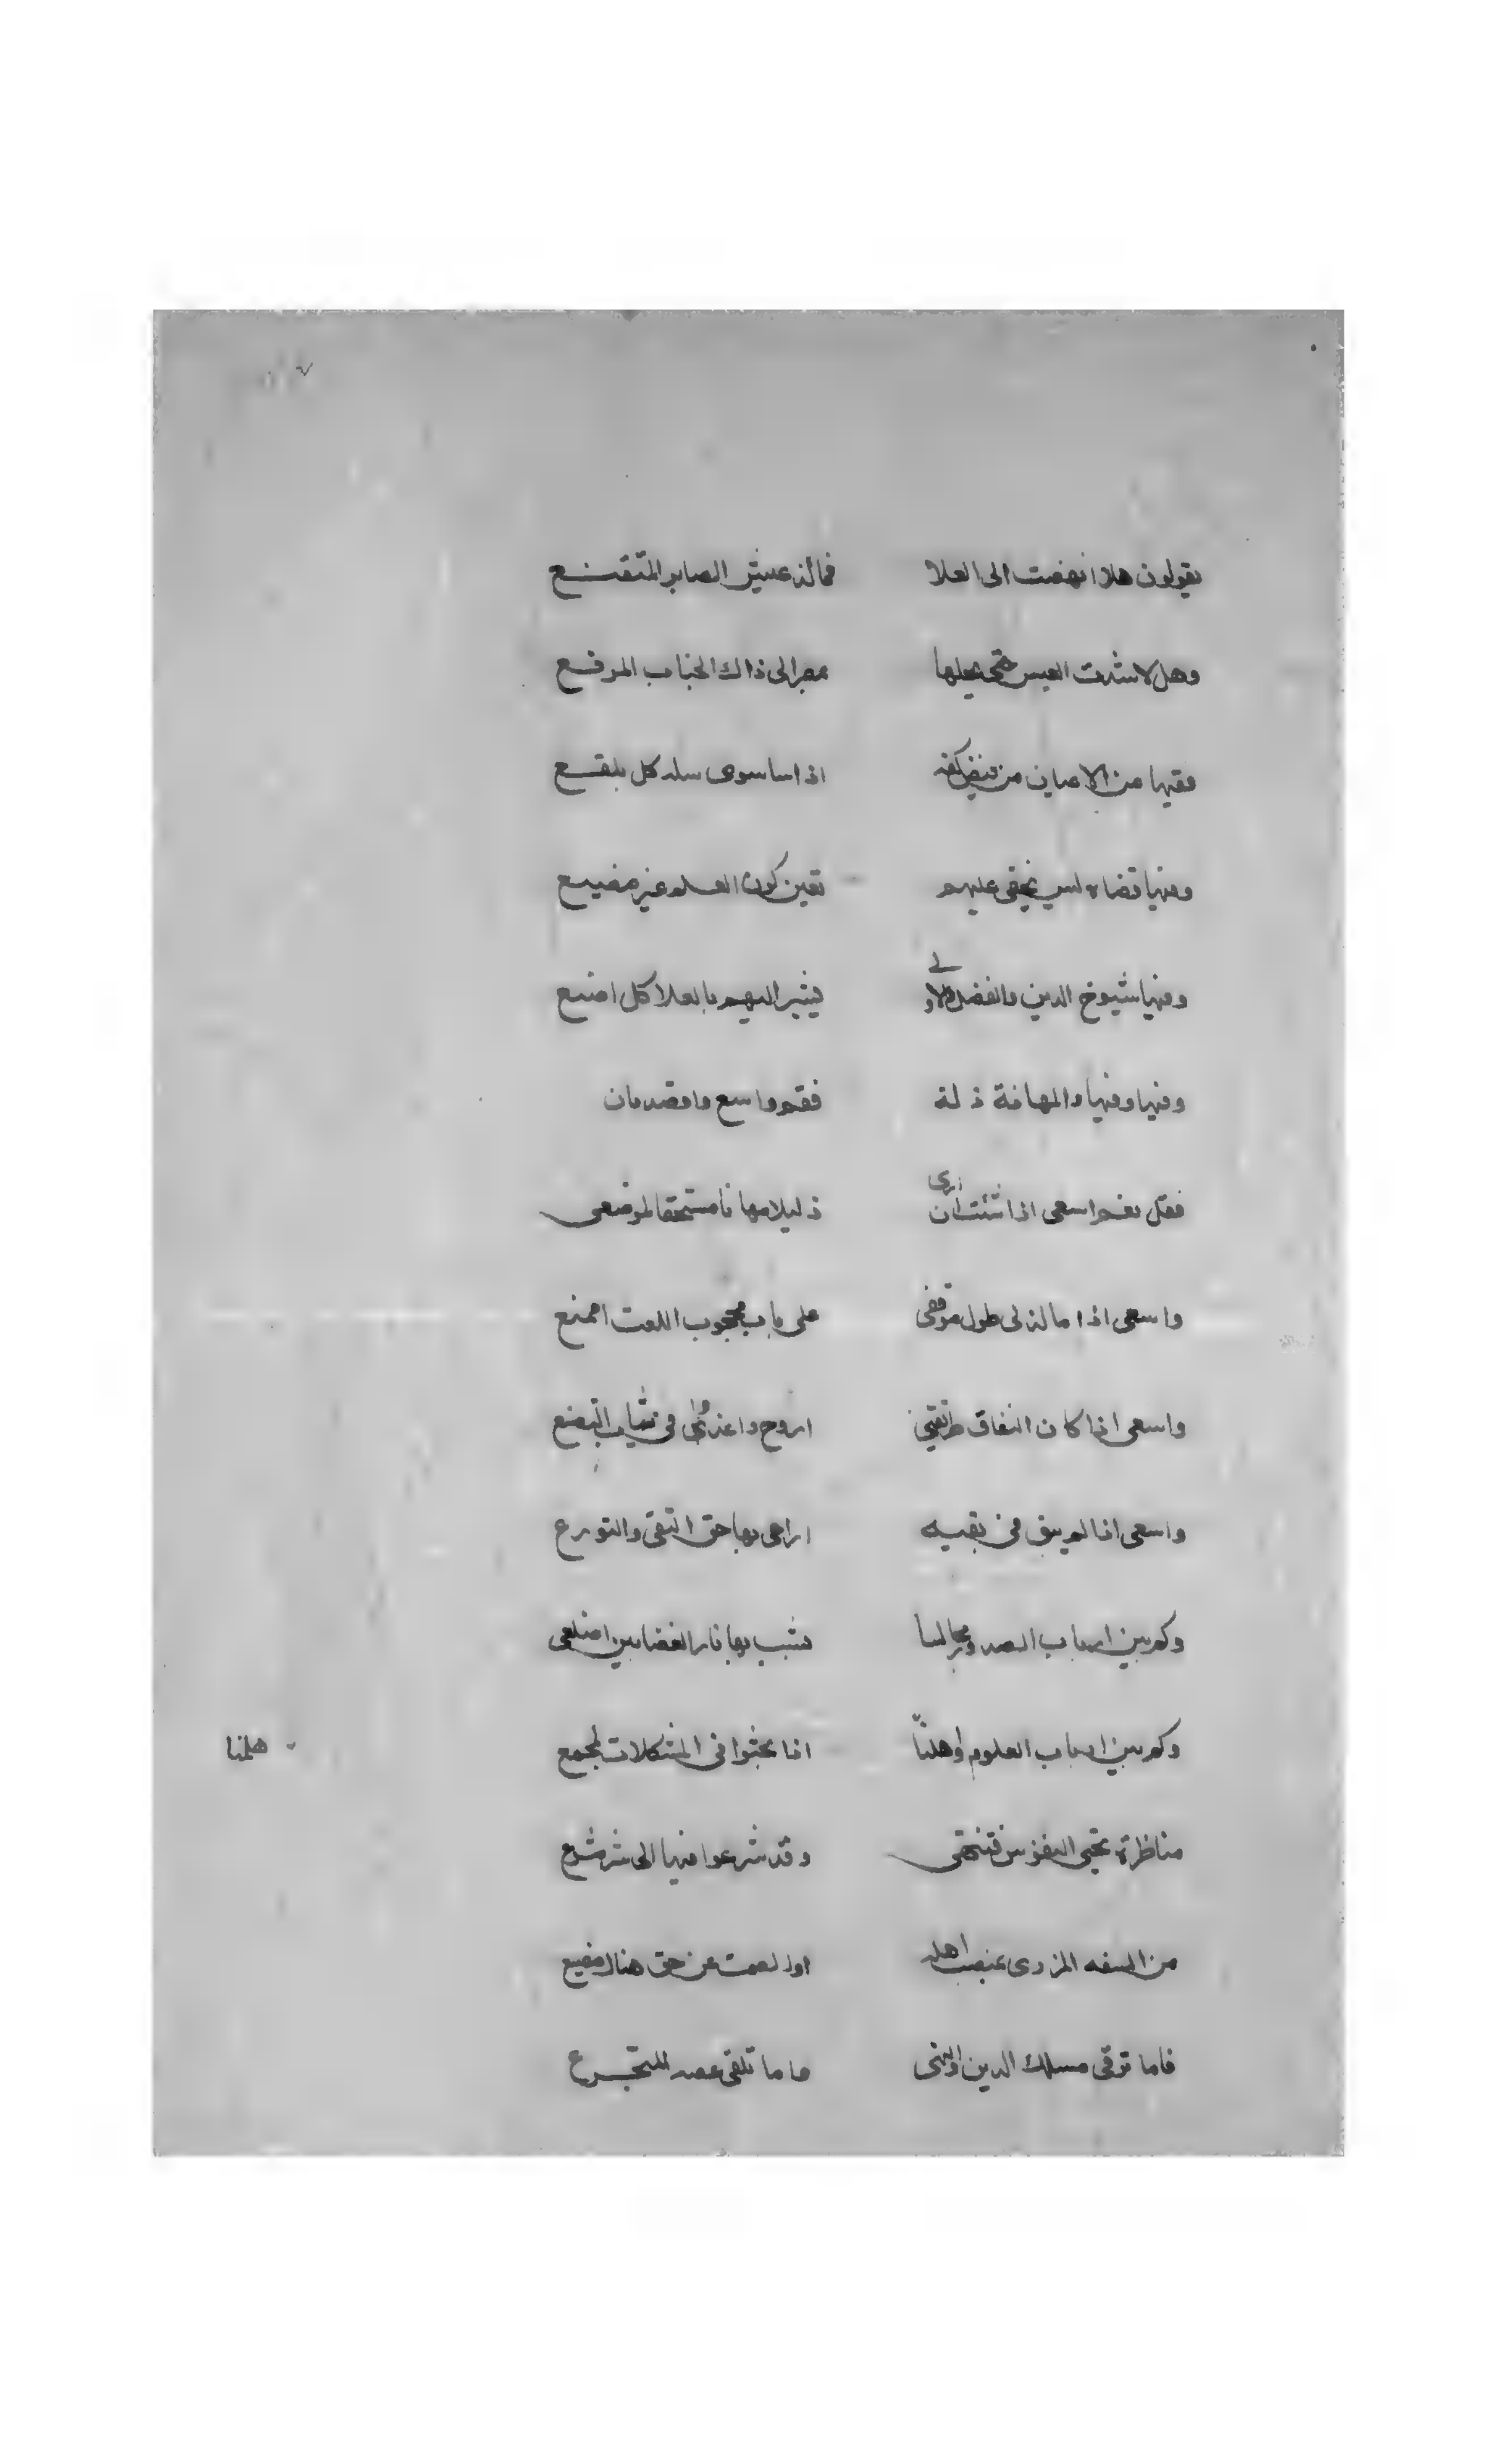 ٧
يقولون هلا انهضت الى العلا فما لذ عيش الصابر المتقنع
وهل لا شددت العيس حتى تحلها بمصر الى ذاك الجناب المرفع
فقيها من الاعيان من فيض كفه اذا سا سوى سله كل بلقع
وفيها قضاه ليس يخفى عليهم تعين كون العلم غير مضيع
وفيها شيوخ الدين والفضل والاولى يشير اليهم بالعلا كل اصبع
وفيها وفيها والمهانة ذلة فقم واسع واقصد بان
فقلت نعم اسعى اذا شئت ان ارى ذليلا مهانا مستحقا لموضعي
واسعى اذا ما لذ لي طول موقفي على باب محجوب اللعت اممنع
واسعى اذا كان النفاق طريقتي اروح واغدوا في ثياب التصنع
واسعى اذا لم يبق في بقيه اراعي بها حق التقى والتورع
وكم بين ارباب الصدور مجالسا تشب بها نار الغضا بين اضلعي
وكم بين ارباب العلوم واهلنا اذا بحثوا في المشكلات لمجمع
هلنا
مناظرة تحمي النفوس فتنتهي وقد شرعوا فيها الى شر مشرع
من السفه المزري بمنصب اهله او الصمت عن حق هناك مضيع
فاما توقى مسلك الدين والنهى واما تلقى غصه المتجرع